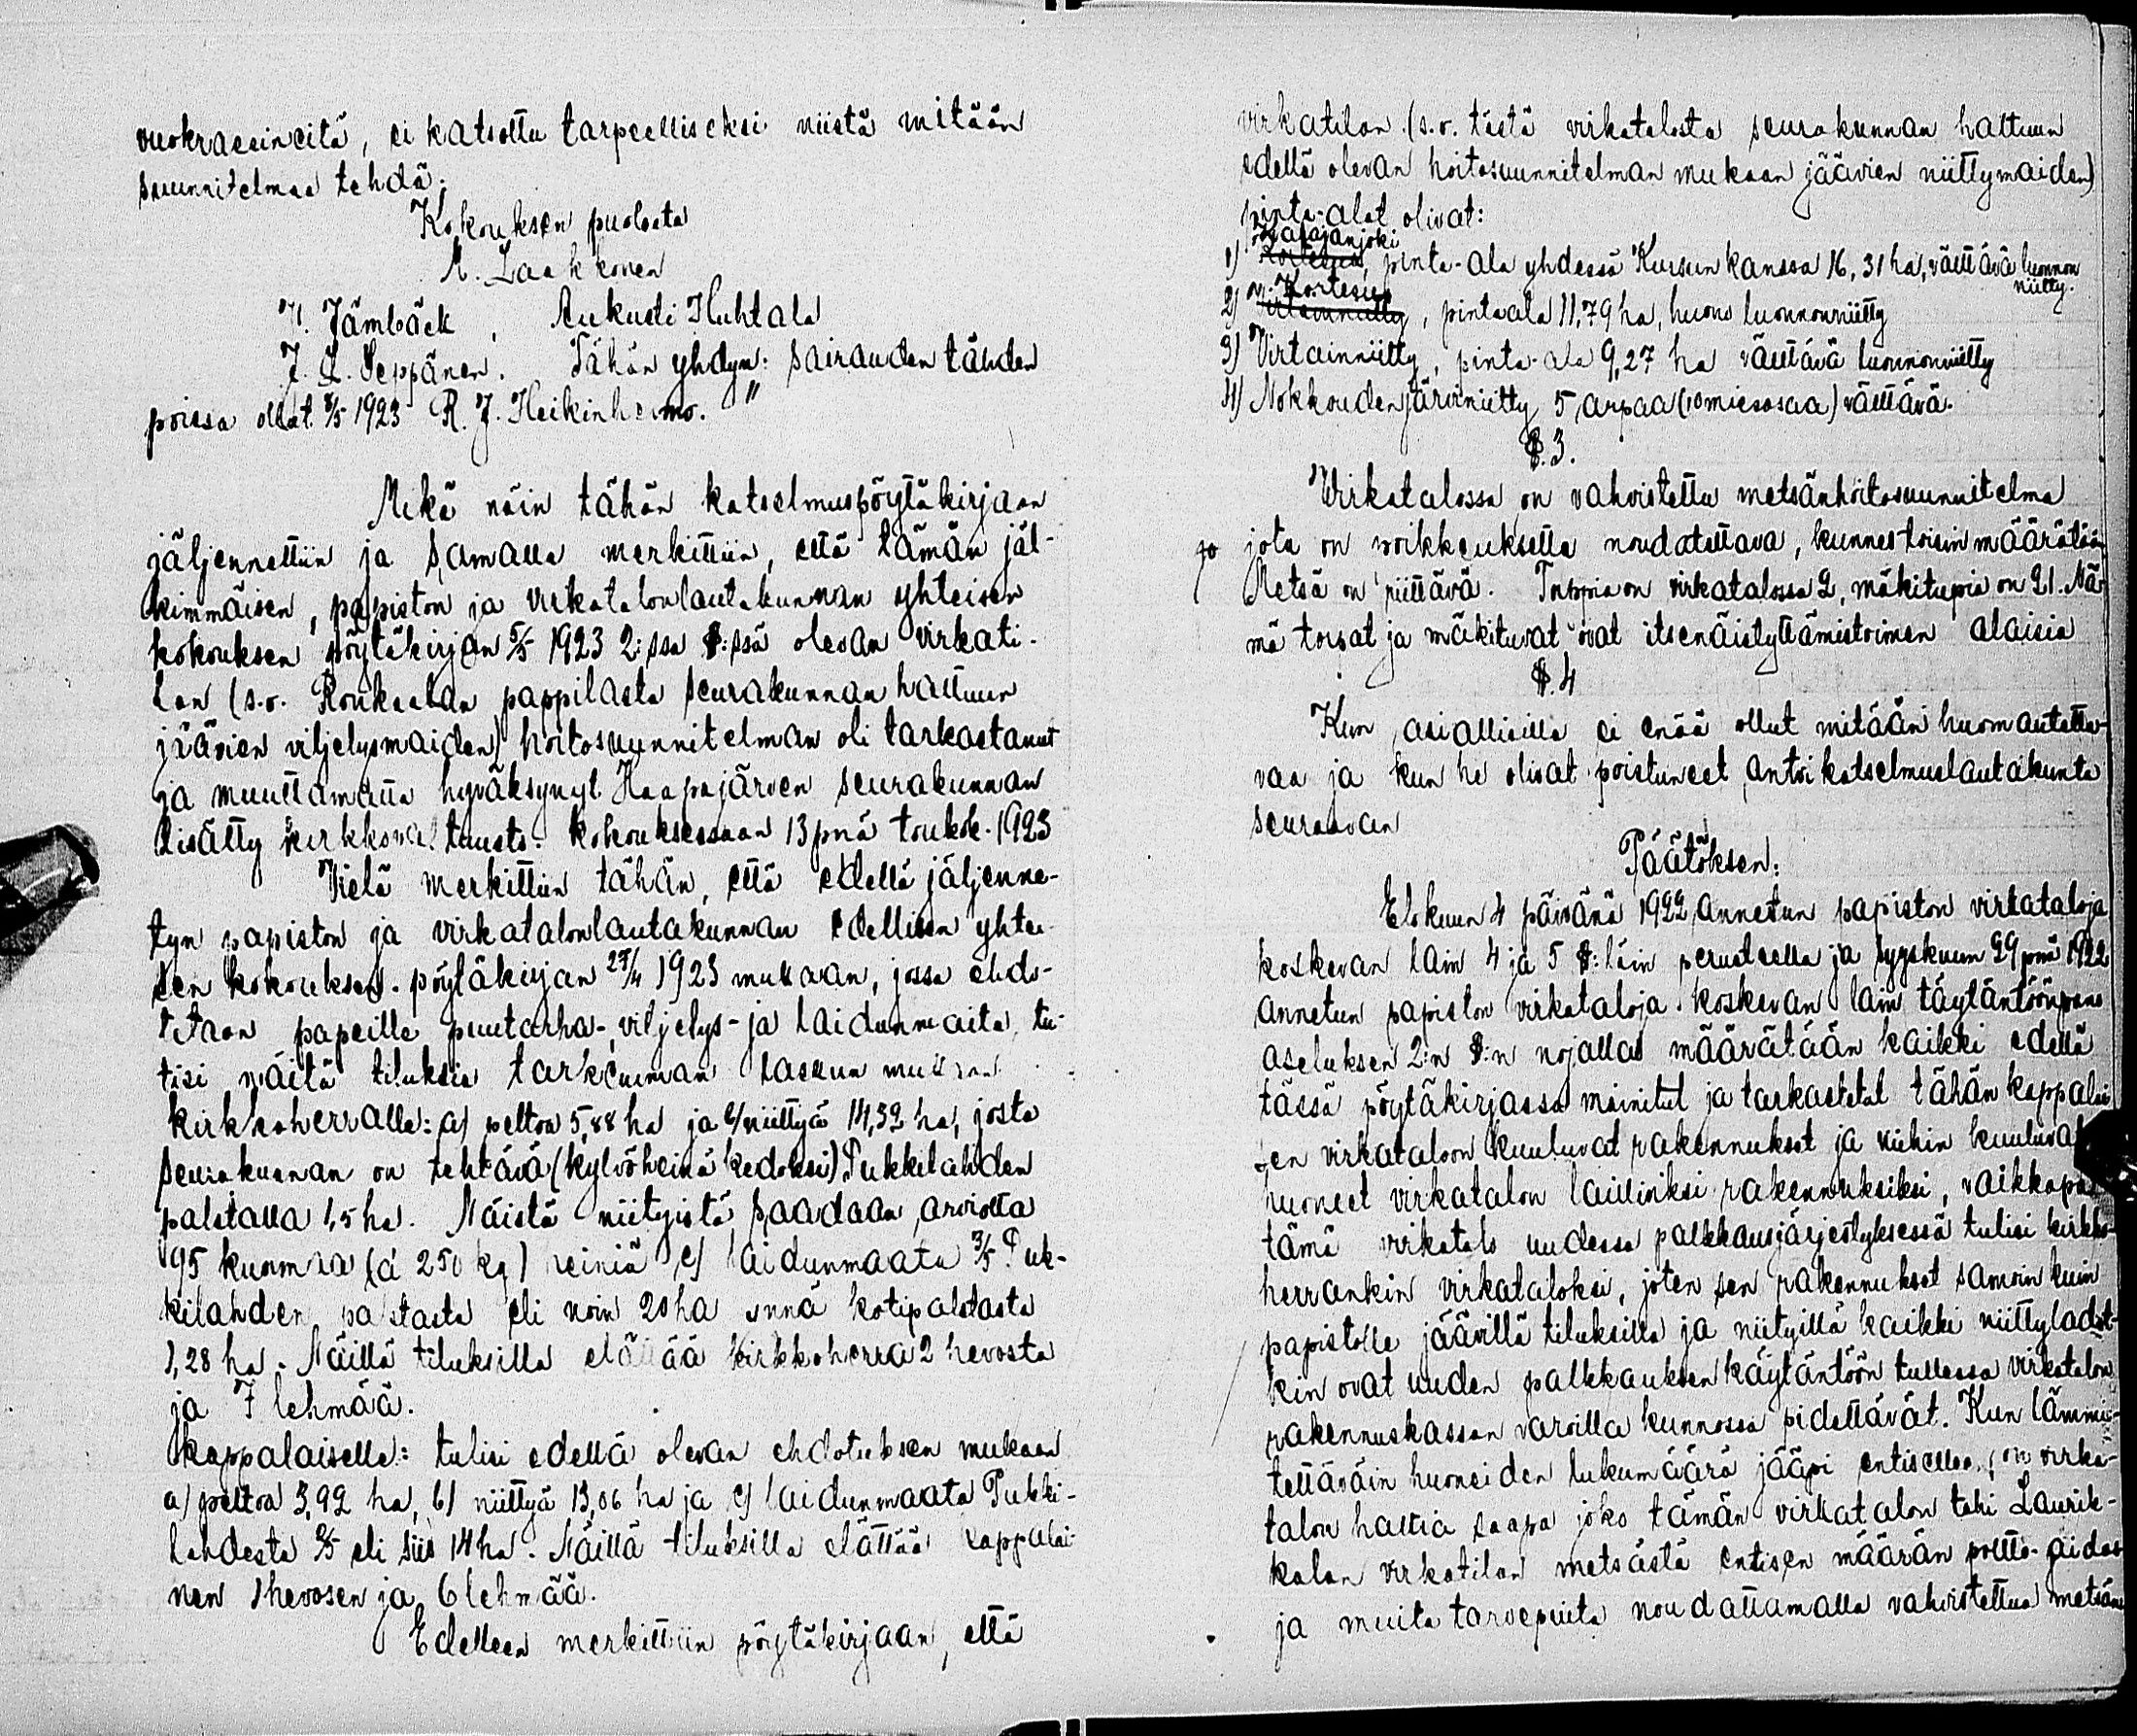 vuokraesineitä, ei katsottu tarpeelliseksi niistä mitään
suunnitelmaa tehdä.
Kokouksen puolesta
M. Laakkonen
H. Jämbäck, Aukusti Huhtala
J. A. Seppänen. Tähän yhdyn: sairauden tähden
poissa ollut 5/5 1923 R. J. Heikinheimo. "
Mikä näin tähän katselmuspöytäkirjaan
jäljennettiin ja samalla merkittiin, että tämän jäl-
kimmäisen, papiston ja virkatalonlautakunnan yhteisen
kokouksen pöytäkirjan 5/5 1923 2:ssa §:ssä olevan virkati-
lan (s.o. Ronkaalan pappilasta seurakunnan haltuun
jäävien viljelysmaiden) hoitosuunnitelman oli tarkastanut
ja muuttamatta hyväksynyt Haapajärven seurakunnan
lisätty kirkkovaltuusto kokouksessaan 13 pnä toukok. 1923
Vielä merkittiin tähän, että edellä jäljenne-
tyn papiston ja virkatalonlautakunnan edellisen yhtei-
sen kokouksen pöytäkirjan 27/4 1923 mukaan, jossa ehdo-
tetaan papeille puutarha-, viljelys- ja laidunmaita, tu-
lisi näitä tiluksia tarkemman laskun mukaan
kirkkoherralle: a) peltoa 5,88 ha ja b) niittyä 14,32 ha, josta
seurakunnan on tehtävä (kylvöheinä kedoksi) Pukkilahden
palstalla 1,5 ha. Näistä niityistä saadaan arviolta
95 kuormaa (á 250 kg) heiniä c) laidunmaata 3/5 Puk-
kilahden palstasta eli noin 20 ha ynnä kotipalstasta
1,28 ha. Näillä tiluksilla elättää kirkkoherra 2 hevosta
ja 7 lehmää.
Kappalaiselle: tulisi edellä olevan ehdotuksen mukaan
a) peltoa 3,92 ha, b) niittyä 13,06 ha ja c) laidunmaata Pukki-
lahdesta 2/5 eli siis 14 ha. Näillä tiluksilla elättää kappalai-
nen 1 hevosen ja 6 lehmää.
Edelleen merkittiin pöytäkirjaan, että
virkatilan (s.o. tästä virkatalosta seurakunnan haltuun
edellä olevan hoitosuunnitelman mukaan jäävien niittymaiden)
pinta-alat olivat:
1) Kortesuo, pinta-ala yhdessä Kursun kanssa 16,31 ha, välttävä luonnon
niitty.
2) Virtainniitty Kortesuo, pintaala 11,79 ha, huono luonnonniitty
3) Virtainniitty, pinta-ala 9,27 ha välttävä luonnonniitty
4) Nokkoudenjärviniitty 5 arpaa (10 miesosaa) välttävä.
§. 3.
Virkatalossa on vahvistettu metsänhoitosuunnitelma
jota on poikkeuksetta noudatettava, kunnes toisin määrätään
Metsä on riittävä. Torppia on virkatalossa 2, mäkitupia on 21. Nä-
mä torpat ja mäkituvat ovat itsenäistyttämistoimen alaisia
§. 4
Kun asiallisilla ei enää ollut mitään huomautetta-
vaa ja kun he olivat poistuneet, antoi katselmuslautakunta
seuraavan
Päätöksen:
Elokuun 4 päivänä 1922 annetun papiston virkataloja
koskevan lain 4 ja 5 §:läin perusteella ja syyskuun 29 pnä 1922
annetun papiston virkataloja koskevan lain täytäntöönpano
asetuksen 2:n §:n nojalla määrätään kaikki edellä
tässä pöytäkirjassa mainitut ja tarkastetut tähän kappalai
sen virkataloon kuuluvat rakennukset ja niihin kuuluvat
huoneet virkatalon laillisiksi rakennuksiksi, vaikkapa
tämä virkatalo uudessa palkkausjärjestyksessä tulisi kirkko-
herrankin virkataloksi, joten sen rakennukset samoin kuin
papistolle jäävillä tiluksilla ja niityillä kaikki niittyladot-
kin ovat uuden palkkauksen käytäntöön tullessa virkatalon
rakennuskassan varoilla kunnossa pidettävät. Kun lämmi-
tettäväin huoneiden lukumäärä jääpi entiselleen, on virka-
talon haltia saapa joko tämän virkatalon tahi Laurik-
kalan virkatilan metsästä entisen määrän poltto- aidas
ja muita tarvepuita noudattamalla vahvistettua metsän